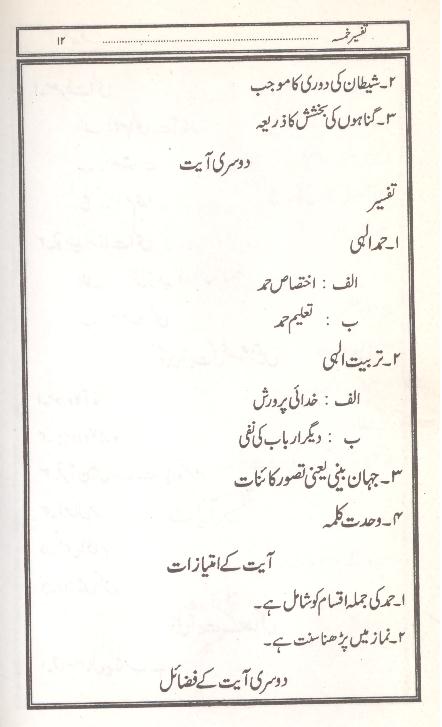 تفسیر خمسہ ........................................ ۱۲
۲۔شیطان کی دوری کا موجب
۳۔گناہوں کی بخشش کا ذریعہ
دوسری آیت
تفسیر
۱۔حمد الٰہی
الف : اختصاص حمد
ب : تعلیم حمد
۲۔تربیت الٰہی
الف : خدائی پرورش
ب : دیگر ارباب کی نفی
۳۔جہان بینی یعنی تصور کائنات
۴۔وحدت کلمہ
آیت کے امتیازات
۱۔حمد کی جملہ اقسام کو شامل ہے۔
۲۔نماز میں پڑھنا سنت ہے۔
دوسری آیت کے فضائل